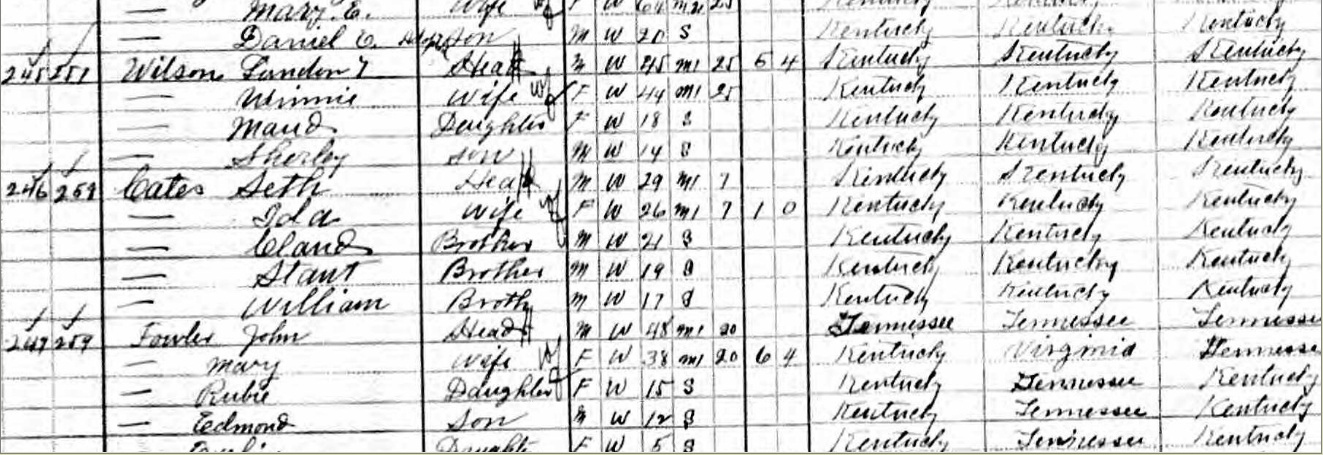 — Mary E. Wife F W 64 M2 25 Kentucky Kentucky Kentucky
— Daniel E. Son M W 20 S Kentucky Kentucky Kentucky
245 257 Wilson Landon T Head M W 45 M1 25 5 4 Kentucky Kentucky Kentucky
— Winnie Wife F W 44 M1 25 Kentucky Kentucky Kentucky
— Maud Daughter F W 18 S Kentucky Kentucky Kentucky
— Sherley Son M W 14 S Kentucky Kentucky Kentucky
246 259 Cates Seth Head M W 29 M1 7 Kentucky Kentucky Kentucky
— Ida Wife F W 26 M1 7 1 0 Kentucky Kentucky Kentucky
— Claud Brother M W 21 S Kentucky Kentucky Kentucky
— Stant Brother M W 19 S Kentucky Kentucky Kentucky
— William Broth M W 17 S Kentucky Kentucky Kentucky
247 259 Fowler John Head M W 48 M1 20 Tennessee Tennessee Tennessee
— Mary Wife F W 38 M1 20 6 4 Kentucky Virginia Tennessee
— Rubie Daughter F W 15 S Kentucky Tennessee Kentucky
— Edmond Son M W 12 S Kentucky Tennessee Kentucky
Daught F W 5 S Kentucky Tennessee Kentucky